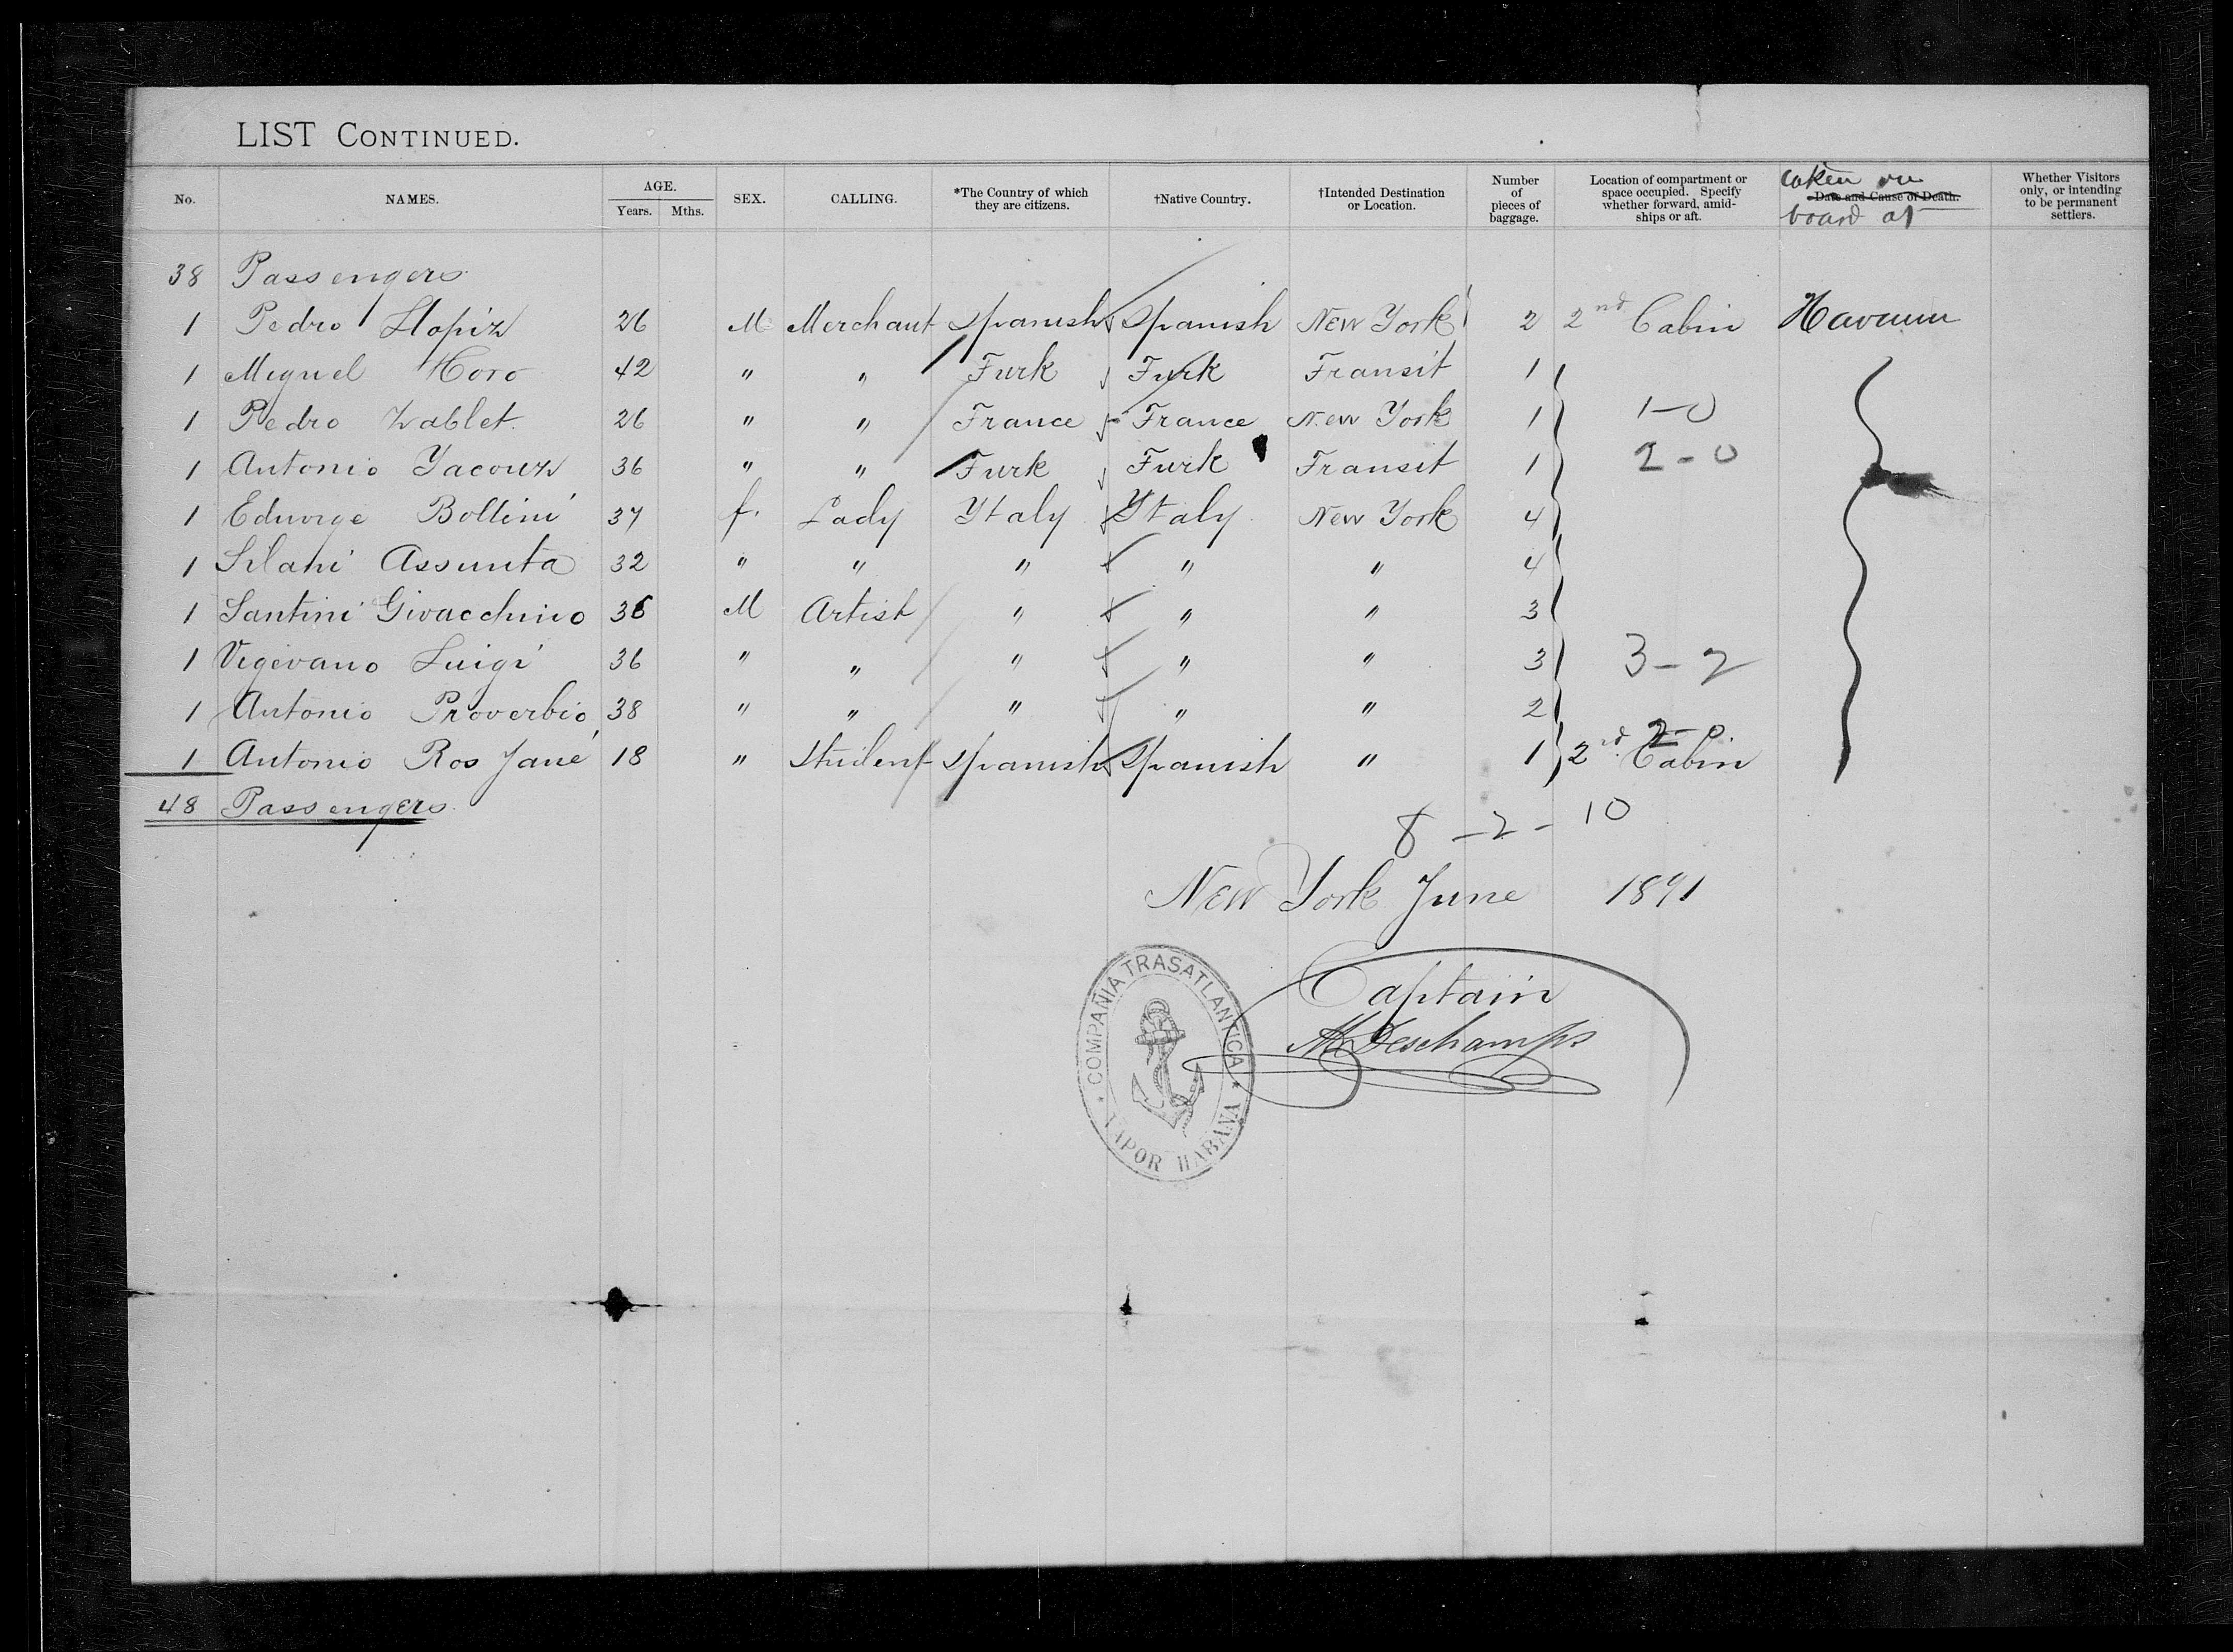 LIST CONTINUED.
No. NAMES. AGE. Years. Mths. SEX. CALLING. *The Country of which they are citizens. †Native Country. †Intended Destination or Location. Number of pieces of baggage. Location of compartment or space occupied. Specify whether forward, amidships or aft. Date and Cause of Death. taken on board at Whether Visitors only, or intending to be permanent settlers.
38 Passengers
1 Pedro Llopiz 26 M Merchant Spanish Spanish New York 2 2nd Cabin Havana
1 Miguel Horo 42 " " Turk Turk Transit 1
1 Pedro Zablet. 26 " " France France New York 1 1-0
1 Antonio Yacouz 36 " " Turk Turk Transit 1 2-0
1 Eduvige Bollini 37 f. Lady Ytaly Ytaly New York 4
1 Silani Assunta 32 " " " " " 4
1 Santini Givacchino 36 M Artist " " " 3
1 Vigevano Luigi 36 " " " " " 3 3-2
1 Antonio Proverbio 38 " " " " " 2
1 Antonio Ros Jané 18 " Student Spanish Spanish " 1 2nd Cabin 2-0
48 Passengers
8-2-10
New York June 1891
Captain
M Deschamps
COMPAÑIA TRASATLANTICA
VAPOR HABANA